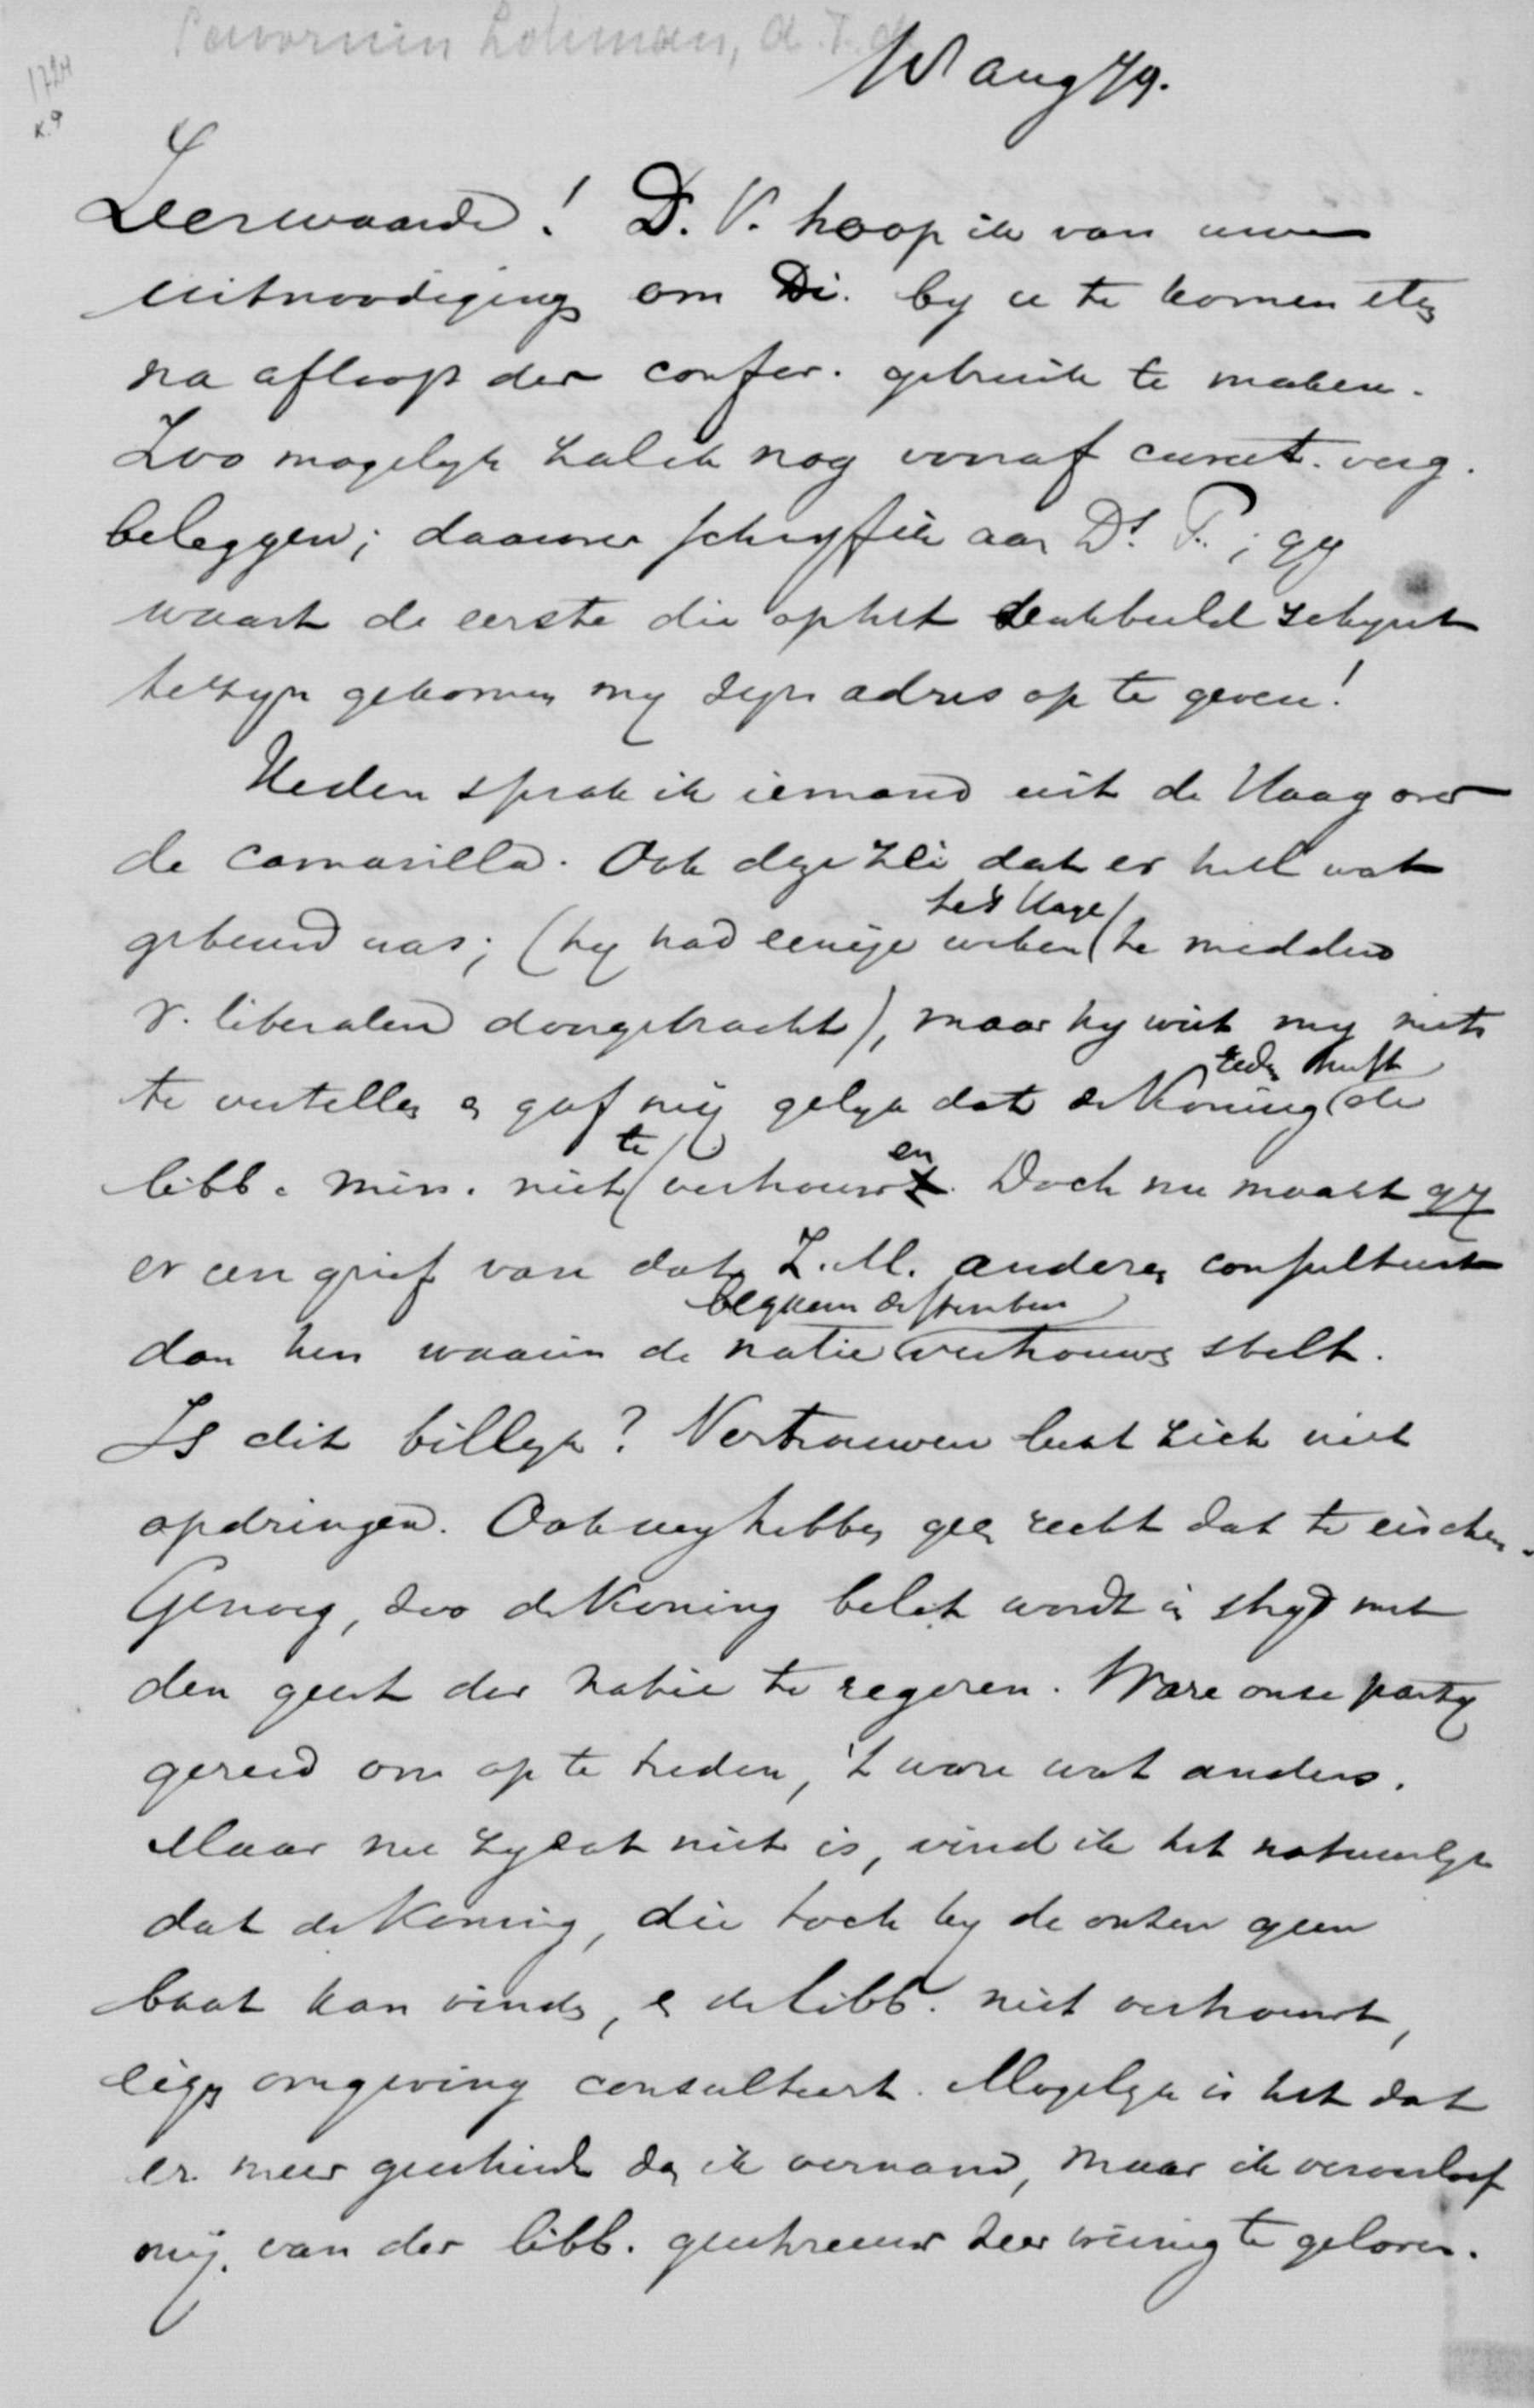 Savornin Lohman, A. F. de
1724
K.9
aug 79.
Zeerwaarde! D.V. hoop ik van uwe
uitnoodiging om Di. by u te komen eten
na afloop der confer. gebruik te maken.
Zoo mogelyk zal ik nog vooraf curat. verg.
beleggen; daarover schryf ik aan Ds. P.; gy
waart de eerste die op het denkbeeld schynt
te zyn gekomen my zyn adres op te geven!
Heden sprak ik iemand uit de Haag over
de camarilla. Ook deze zei dat er heel wat
gebeurd was; (hy had eenige weken te 's Hage te midden
v. liberalen doorgebracht), maar hy wist my niets
te vertellen en gaf mij gelyk dat de Koning reden heeft de
libb. min. niet te vertrouwen. Doch nu maakt gy
er een grief van dat Z.M. anderen consulteert
dan hen waarin de natie vertrouwen stelt.
Is dit billyk? Vertrouwen laat zich niet
opdringen. Ook wy hebben geen recht dat te eischen.
Genoeg, zoo de Koning belet wordt in stryd met
den geest der natie te regeren. Ware onze party
gereed om op te treden, 't ware wat anders.
Maar nu zy dat niet is, vind ik het natuurlyk
dat de Koning, die toch by de onzen geen
baat kan vinden, en de libb. niet vertrouwt,
eigen omgeving consulteert. Mogelyk is het dat
er meer geschiedt dan ik vernam, maar ik veroorloof
mij van der libb. geschreeuw zeer weinig te gelooven.